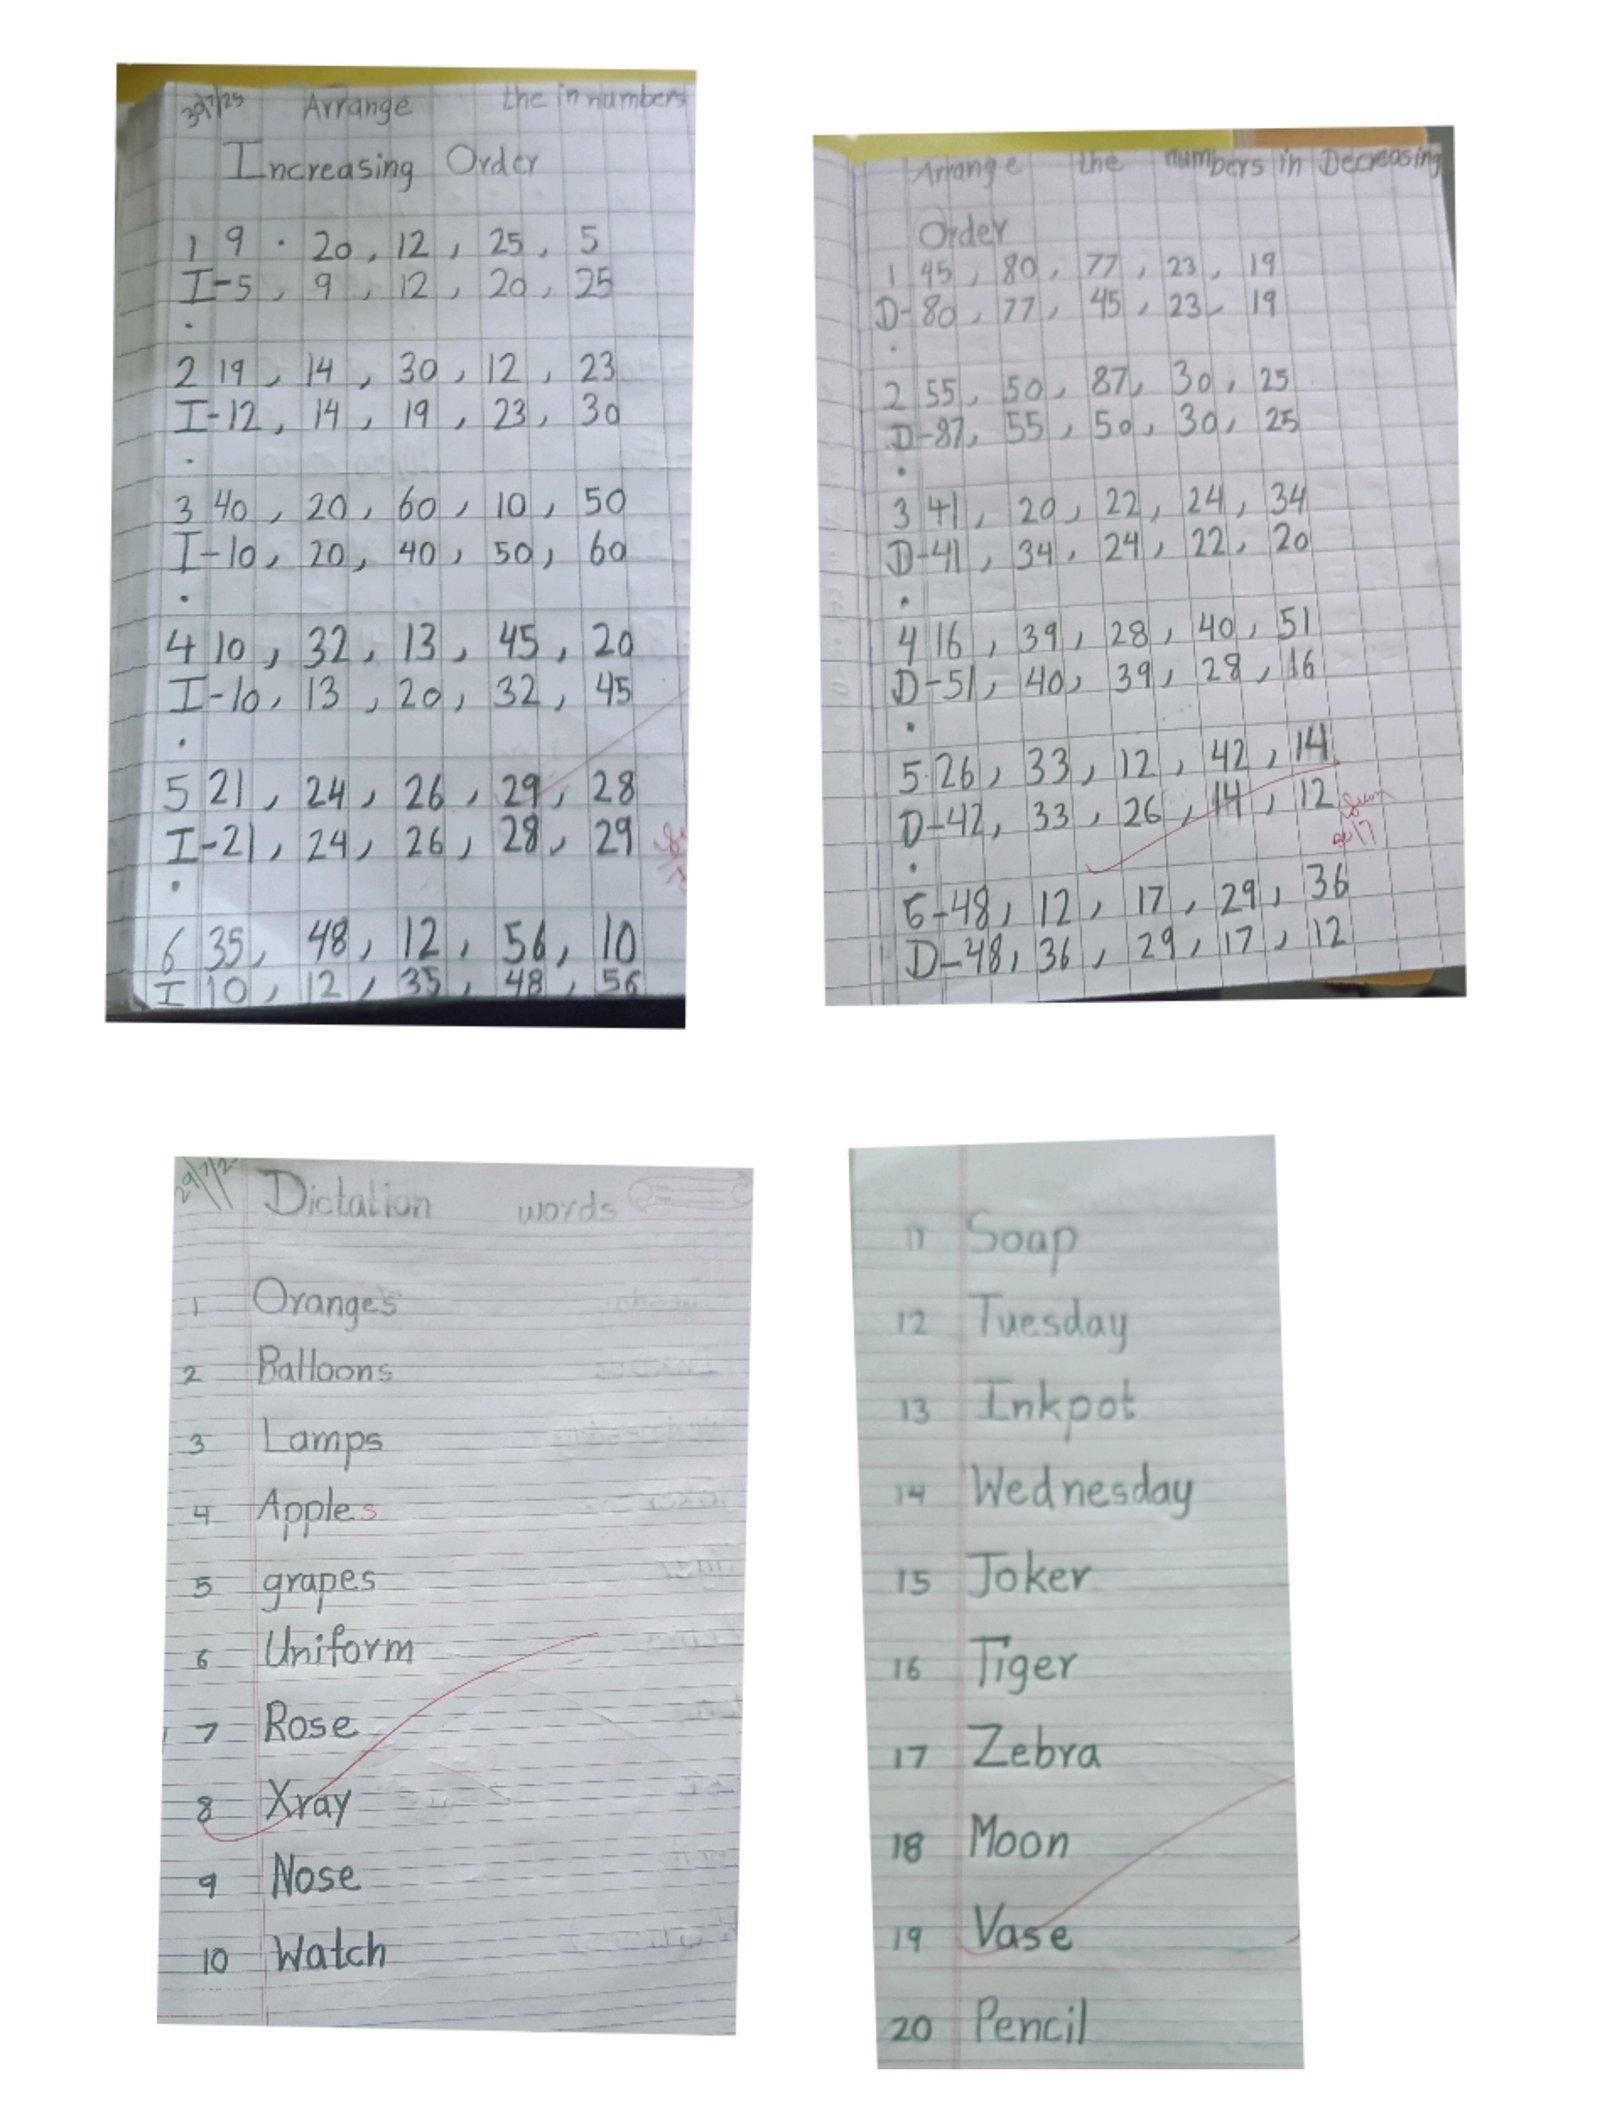 30/7/25 Arrange the in numbers
Increasing Order
1 9 . 20, 12, 25, 5
I-5, 9, 12, 20, 25
.
2 19, 14, 30, 12, 23
I-12, 14, 19, 23, 30
.
3 40, 20, 60, 10, 50
I-10, 20, 40, 50, 60
.
4 10, 32, 13, 45, 20
I-10, 13, 20, 32, 45
.
5 21, 24, 26, 29, 28
I-21, 24, 26, 28, 29
.
6 35, 48, 12, 56, 10
I 10, 12, 35, 48, 56
Arrange the numbers in Decreasing
Order
1 45, 80, 77, 23, 19
D-80, 77, 45, 23, 19
.
2 55, 50, 87, 30, 25
D-87, 55, 50, 30, 25
.
3 41, 20, 22, 24, 34
D-41, 34, 24, 22, 20
.
4 16, 39, 28, 40, 51
D-51, 40, 39, 28, 16
.
5 26, 33, 12, 42, 14
D-42, 33, 26, 14, 12
.
6-48, 12, 17, 29, 36
D-48, 36, 29, 17, 12
29/7/2 Dictation words
1 Oranges
2 Balloons
3 Lamps
4 Apples
5 grapes
6 Uniform
7 Rose
8 Xray
9 Nose
10 Watch
11 Soap
12 Tuesday
13 Inkpot
14 Wednesday
15 Joker
16 Tiger
17 Zebra
18 Moon
19 Vase
20 Pencil